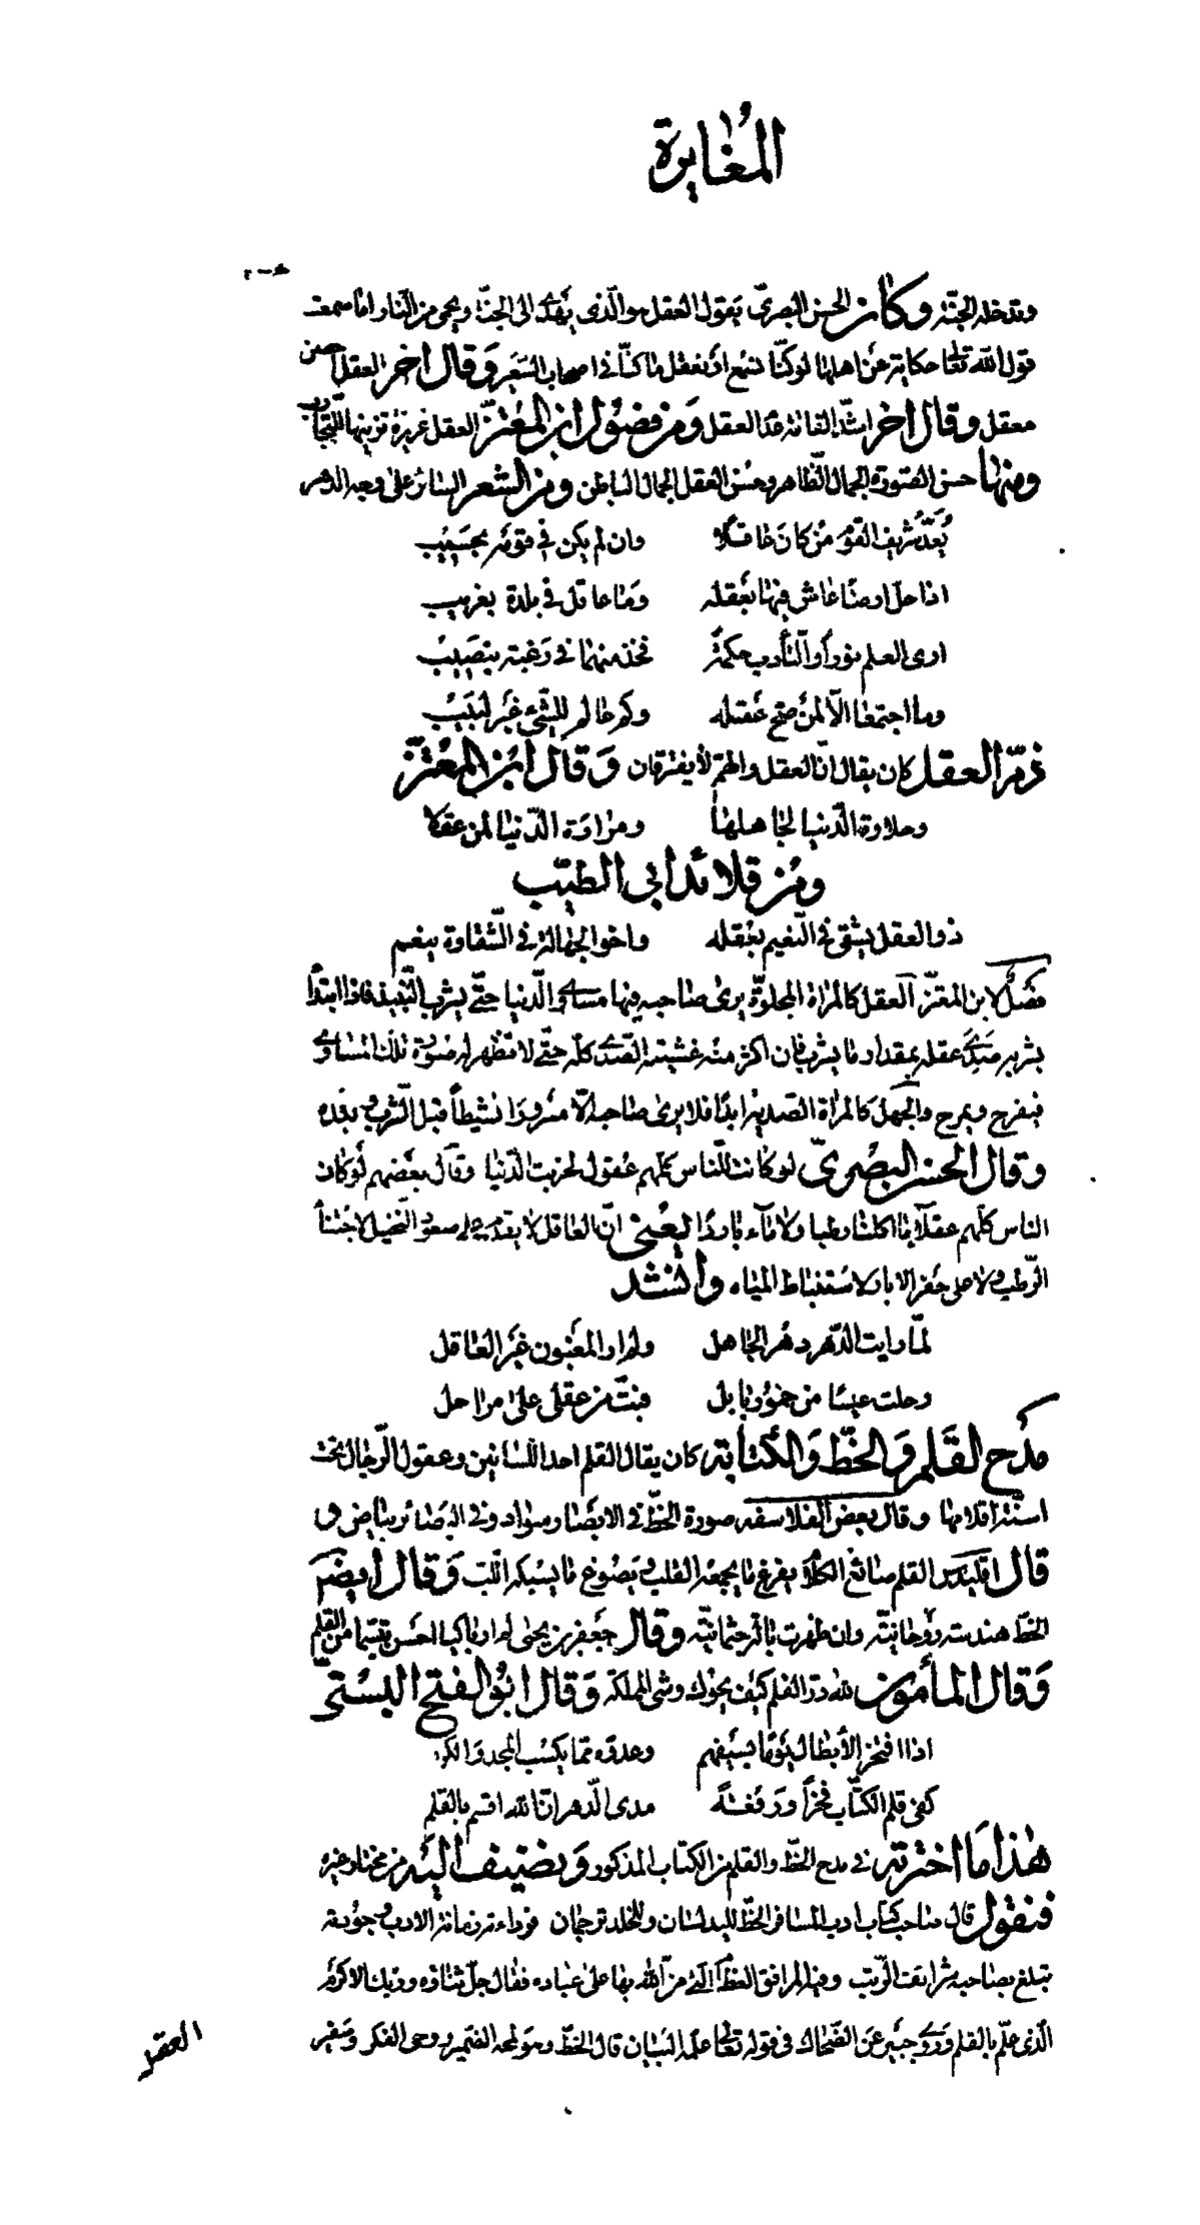 المُغايرة
وقد خله الجنّة وكان الحسن البصريّ يقول العقل هو الّذى يهدى الى الجنّة ويحمى من النّار اما سمعت
قول اللّه تعالى حكاية عن اهلها لو كنّا نسمع او نعقل ما كنّا فى اصحاب السّعير وَقال اخر العقل احصن
معقل وقال اخر اشدّ الفاقة عدم العقل وَمن فصُول ابن المُعتزّ العقل غريزة تزينها التّجارب
ومنها حسن الصّورة الجمال الظّاهر وحُسن العقل الجمال الباطن ومن الشعر السّائر على وجه الدّهر
يُعَدّ شريف القوم مَن كانَ عاقلا وان لم يكن فى قومه بحسيب
اذا حلّ ارضًا عاش فيها بعقله وَما عاقل فى بلدة بغريب
ارى العلم نورًا والتّأدب حكمة فخذ منهما فى رَغبة بنصيب
وما اجتمعا الّا لمن صحّ عقله وكم عالم للشّئ غير لبيب
ذمّ العقل كان يقال انّ العقل والهمّ لا يفترقان وَقال ابن المُعتزّ
وحلاوة الدّنيا لجاهلها ومرارة الدّنيا لمن عقلا
ومن قلائد ابى الطيّب
ذو العقل يشقى فى النّعيم بعقله واخو الجهالة فى الشّقاوة ينعم
فصل لابن المعتزّ العقل كالمرآة المجلوّة يرى صاحبه فيها مساوى الدّنيا حتّى يشرب النّبيذ فاذا ابتدأ
بشربه صَدِئ عقله بمقدار ما يشرب فان اكثر منه غشيته الصّدى كلّه حتّى لا تظهر له صورة تلك المساوى
فيفرح ويمرح والجهل كالمرآة الصّدية ابدًا فلا يرى صاحبه الّا مسرورًا نشيطًا قبل الشّرب وبعده
وقال الحسن البصرىّ لو كانت للنّاس كلهم عقول لخربت الدّنيا وقال بعضهم لو كان
الناس كلّهم عقلاء ما اكلنا رطبا ولا ماء باردًا يعنى انّ العاقل لا يقدم على صعود النّخيل لاجتناء
الرّطب ولا على حفر الابار لاستنباط المياه وانشد
لمّا رايت الدّهر دهر الجاهل ولم ار المغبون غير العاقل
رحلت عيسًا من خمور بابل فبتّ من عقلى على مراحل
مدح القلم وَالخطّ وَالكتابة كان يقال القلم احد اللّسانين وعقول الرّجال تحت
اسنّة اقلامها وقال بعض الفلاسفه صورة الخطّ فى الابصار سواد وفى البصائر بياض ق
قال اقليدس القلم صائغ الكلام يفرغ ما يجمعه القلب ويصوغ ما يسبكه اللّب وَقال ايضا
الخطّ هندسة روحانيّة وان ظهرت بآلة جثمانيّة وقال جعفر بن يحيى لم ار باكيا احسن تبسّما من القلم
وَقال المأمون للّه درّ القلم كيف يحوك وشى المملكة وَقال ابُو الفتح البستىّ
اذا افتخر الأبطال يومًا بسيفهم وعدّوه ممّا يكسب المجد والكرم
كفى قلم الكتّاب فخرًا ورفعة مدى الدّهر انّ اللّه اقسم بالقلم
هذا ما اخترته فى مدح الخطّ والقلم من الكتاب المذكور وَنضيف اليه من مختار غيره
فنقول قال صاحب كتاب ادب المسافر الخطّ لليد لسان وللخلد ترجمان فرداءته زمانة الادب وجودته
تبلغ بصاحبه شرائف الرّتب وفيه المرافق العظام الّتى منّ اللّه بها على عباده فقال جلّ ثناؤه وربّك الاكرم
الّذى علّم بالقلم وَروى جبير عَن الضّحاك فى قوله تعالى علّمه البيان قال الخطّ وهو لمحة الضّمير ووحى الفكر وسفير
العقل